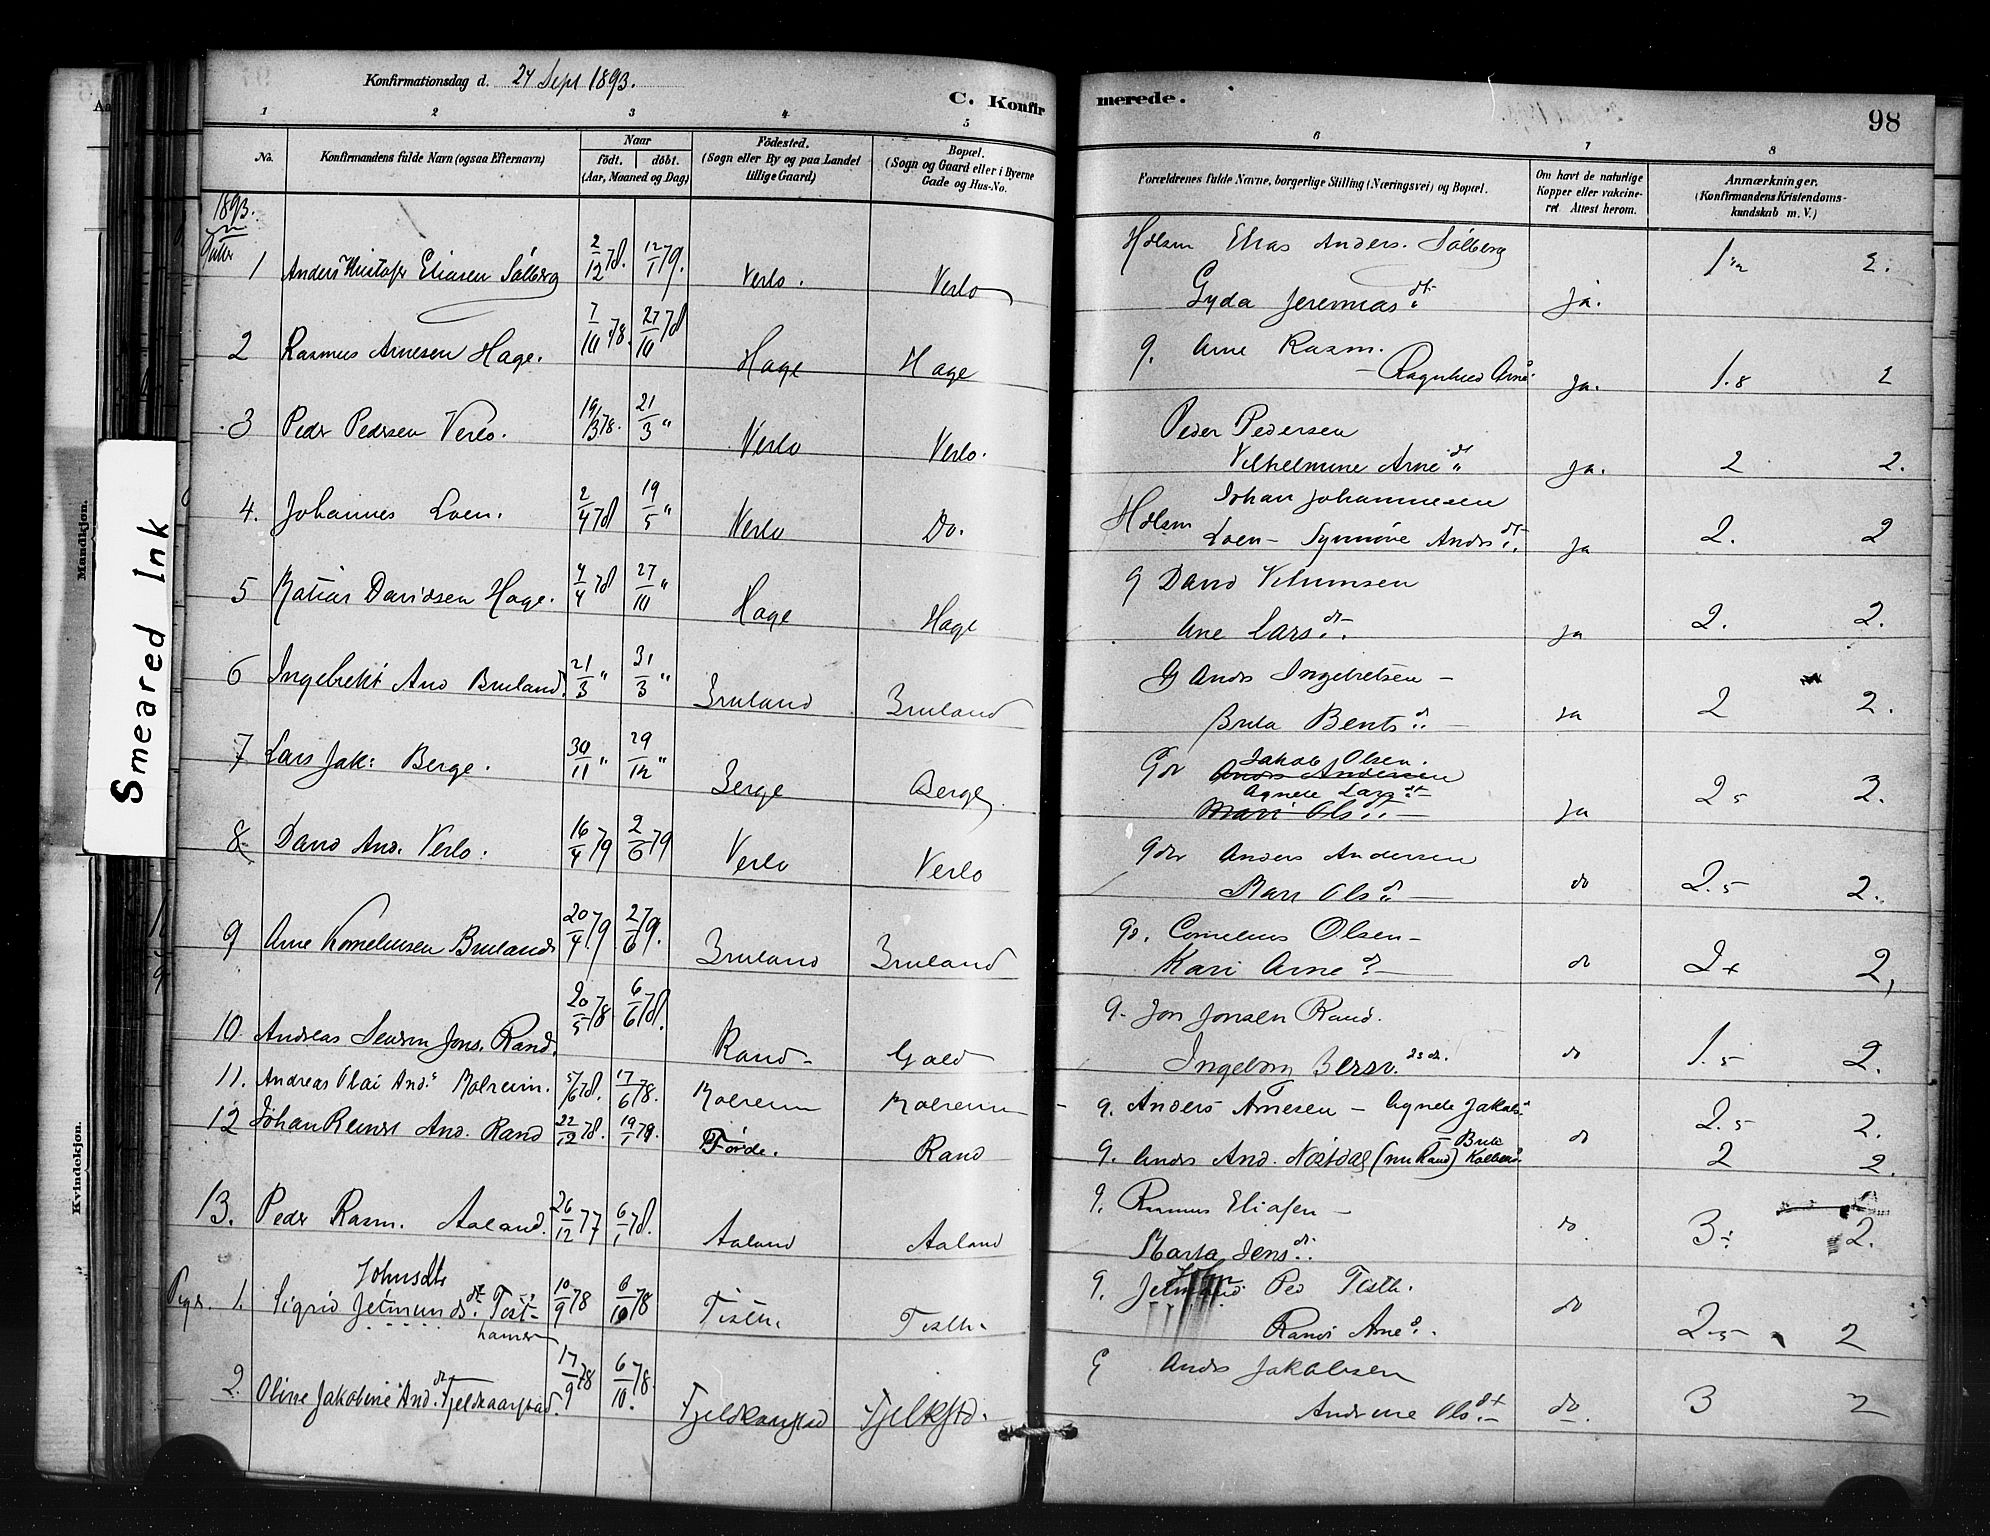 Konfirmationsdag d. 24 Sept 1893.
C. Konfirmerede.
98
1 2 3 4 5 6 7 8
No.
Konfirmandens fulde Navn (ogsaa Efternavn)
Naar
födt. döbt.
(Aar, Maaned og Dag)
Födested.
(Sogn eller By og paa Landet
tillige Gaard)
Bopæl.
(Sogn og Gaard eller i Byerne
Gade og Hus-No.
Forældrenes fulde Navne, borgerlige Stilling (Næringsvei) og Bopæl.
Om havt de naturlige
Kopper eller vakcine-
ret Attest herom.
Anmærkninger.
(Konfirmandens Kristendoms-
kundskab m. V.)
Mandkjøn.
Kvindekjøn.
Smeared Ink
1893.
Gutter
1 Anders Kristofer Eliasen Sölberg 2/12 78. 12/1 79. Verlo. Verlo Elias Anders. Sölberg
Gyda Jeremias dt. ja. 2.
2 Rasmus Arnesen Hage. 7/10 78. 27/10 78 Hage Hage g. Arne Rasm.
Ragnhild Arne d. ja. 1.8 2
3 Peder Pedersen Verlo. 19/3 78. 21/3 " Verlo Verlo. Peder Pedersen
Vilhelmine Arne d. ja. 2 2.
4. Johannes Loen. 2/4 78 19/5 " Verlo Do. Johan Johannesen
Loen - Synnöve Anders dt. ja 2. 2
5 Matias Davidsen Hage. 4/4 78 27/10 " Hage Hage g David
Ane Lars dt. ja 2. 2.
6 Ingebrekt And Bruland. 21/3 " 31/3 " Bruland Bruland G Anders Ingebretsen -
Brita Bents d. ja 2 2.
7 Lars Jak: Berge. 30/11 " 29/12 " Berge Berge Gdr Jakob Olsen.
Anders Andersen
Agnete Lars dt
Mari Ols dt. ja 2 5 2.
8 David And. Verlo. 16/4 79 2/6 79 Verlo Verlo Gdr Anders Andersen
Mari Ols d. do 2.5 2.
9 Arne Korneliusen Bruland 20/4 79 27/6 79. Bruland Bruland gd. Cornelius Olsen -
Kari Arne d. do 2+ 2,
10 Andreas Severin Jons. Rand. 20/5 78 6/6 78. Rand g. Jon Jonsen Rand.
Ingeborg do 1.5 2.
11. Andreas Olai And. 5/6 78. 17/6 78. g. Anders Arnesen - Agnete Jakobs d. 2.5 2.
12 Johan Reinert And. Rand 22/12 78. Förde. Rand do
g. Anders And. (nu Rand) Brita 2 2.
13. Peder Rasm. Aaland. 26/12 77 6/1 78. Aaland Aaland g. Rasmus Eliasen -
Marta Jens d. do. 3 2.
Piger. 1. Johnsdtr
Sigrid Jetmunds dt. Tist-
hamer 10/9 78 6/10 78 Tisth. Tisth. g. Ped Tisth.
Randi Arne d. do 2-5 2
2. Oline Jakobine And. dt. Fjeldkaarstad. 17/9 78 6/10 78. Fjeldkaarstad Fjelkstd. G Anders Jakobsen
Andrine Ols dt. do. 3 2